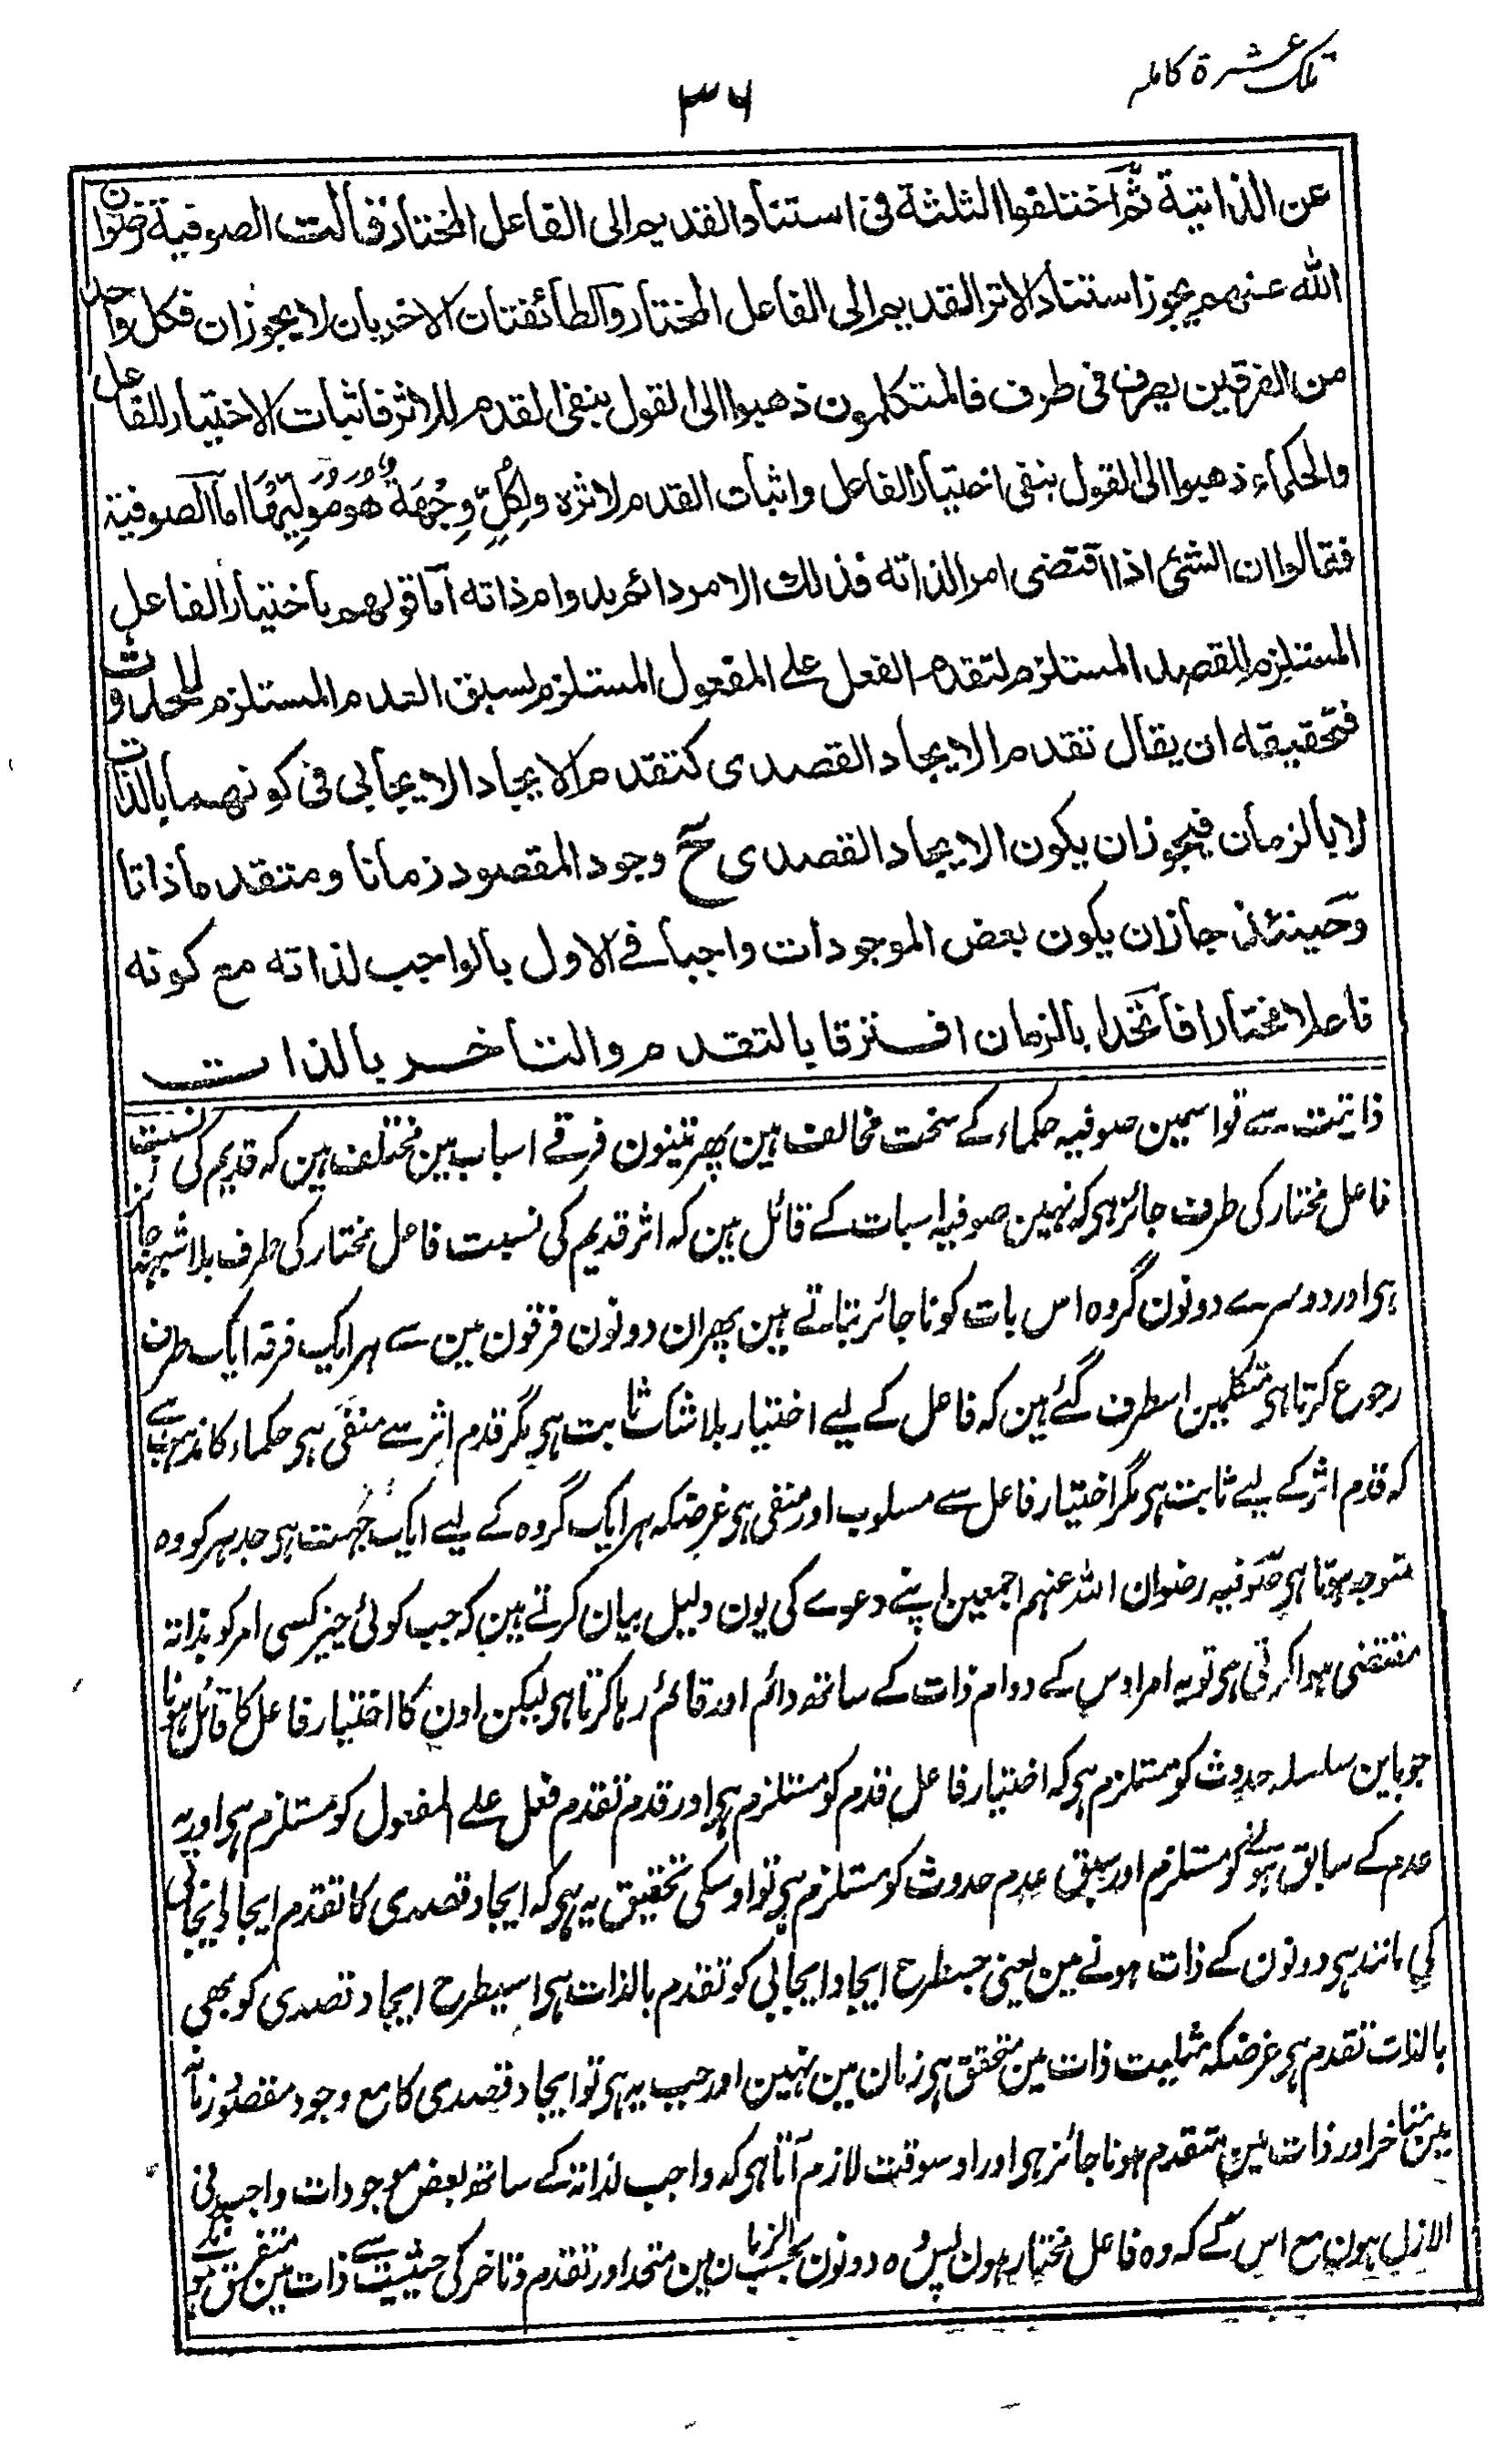 تلك عشرة كاملہ
۳۶
عن الذاتية ثم اختلفوا الثلثة فى استناد القديم الى الفاعل المختار فقالت الصوفية رضوان
الله عنهم يجوز استناد الاثر القديم الى الفاعل المختار والطائفتان الاخريان لا يجوزان فكل واحد
من الفرقين يصرف فى طرف فالمتكلمون ذهبوا الى القول بنفى القدم للاثر فاثبات الاختيار للفاعل
والحكماء ذهبوا الى القول بنفى اختيار الفاعل واثبات القدم لاثره ولِكُلٍّ وِجْهَةٌ هُوَ مُوَلِّيْهَا اما الصوفية
فقالوا ان الشئ اذا اقتضى امرا لذاته فذلك الامر دائم بدوام ذاته اما قولهم باختيار الفاعل
المستلزم للقصد المستلزم لتقدم الفعل على المفعول المستلزم لسبق العدم المستلزم للحدوث
فتحقيقه ان يقال تقدم الايجاد القصدى كتقدم الايجاد الايجابى فى كونهما بالذات
لا بالزمان فيجوز ان يكون الايجاد القصدى مع وجود المقصود زمانا ومتقدما ذاتا
وحينئذ جاز ان يكون بعض الموجودات واجبا فے الاول بالواجب لذاته مع كونه
فاعلا مختارا فاتحدا بالزمان افترقا بالتقدم والتاخر بالذات
ذاتیت سے تو اسمین صوفیہ حکماء کے سخت مخالف ہین پھر تینون فرقے اسباب مین مختلف ہین کہ قدیم کی نسبت
فاعل مختار کی طرف جائز ہی کہ نہین صوفیہ اسبات کے قائل ہین کہ اثر قدیم کی نسبت فاعل مختار کی طرف بلاشبہ جائز
ہی اور دوسرے دونون گروہ اس بات کو ناجائز بتاتے ہین پھر ان دونون فرقون مین سے ہر ایک فرقہ ایک طرف
رجوع کرتا ہی متکلمین اسطرف گئے ہین کہ فاعل کے لیے اختیار بلاشک ثابت ہی مگر قدم اثر سے منفی ہی حکماء کا مذہب ہے
کہ قدم اثر کے لیے ثابت ہی مگر اختیار فاعل سے مسلوب اور منفی ہی غرضکہ ہر ایک گروہ کے لیے ایک جہت ہی جدہر کو وہ
متوجہ ہوتا ہی صوفیہ رضوان اللہ عنہم اجمعین اپنے دعوے کی یون دلیل بیان کرتے ہین کہ جب کوئی چیز کسی امر کو بذاتہ
مقتضی ہوا کرتی ہی تو یہ امر اوس کے دوام ذات کے ساتھ دائم اور قائم رہا کرتا ہی لیکن اون کا اختیار فاعل کا قائل ہونا
جو باین سلسلہ حدوث کو مستلزم ہی کہ اختیار فاعل قدم کو مستلزم ہی اور قدم تقدم فعل علے المفعول کو مستلزم ہی اور یہ
عدم کے سابق ہونے کو مستلزم اور سبق عدم حدوث کو مستلزم ہی تو اوسکی تحقیق یہ ہی کہ ایجاد قصدی کا تقدم ایجاد ایجابی
کی مانند ہی دونون کے ذات ہونے مین یعنی جسطرح ایجاد ایجابی کو تقدم بالذات ہی اسیطرح ایجاد قصدی کو بھی
بالذات تقدم ہی غرضکہ مثلیت ذات مین متحقق ہی زمان مین نہین اور جب یہ ہی تو ایجاد قصدی کا مع وجود مقصود زمانہ
مین متاخر اور ذات مین متقدم ہونا جائز ہی اور اوسوقت لازم آتا ہی کہ واجب لذاتہ کے ساتھ بعض موجودات واجب فی
الازل ہون مع اس کے کہ وہ فاعل مختار ہون پس وہ دونون بحسب الزمان مین متحد اور تقدم و تاخر کی حیثیت سے ذات مین متفرق ہو